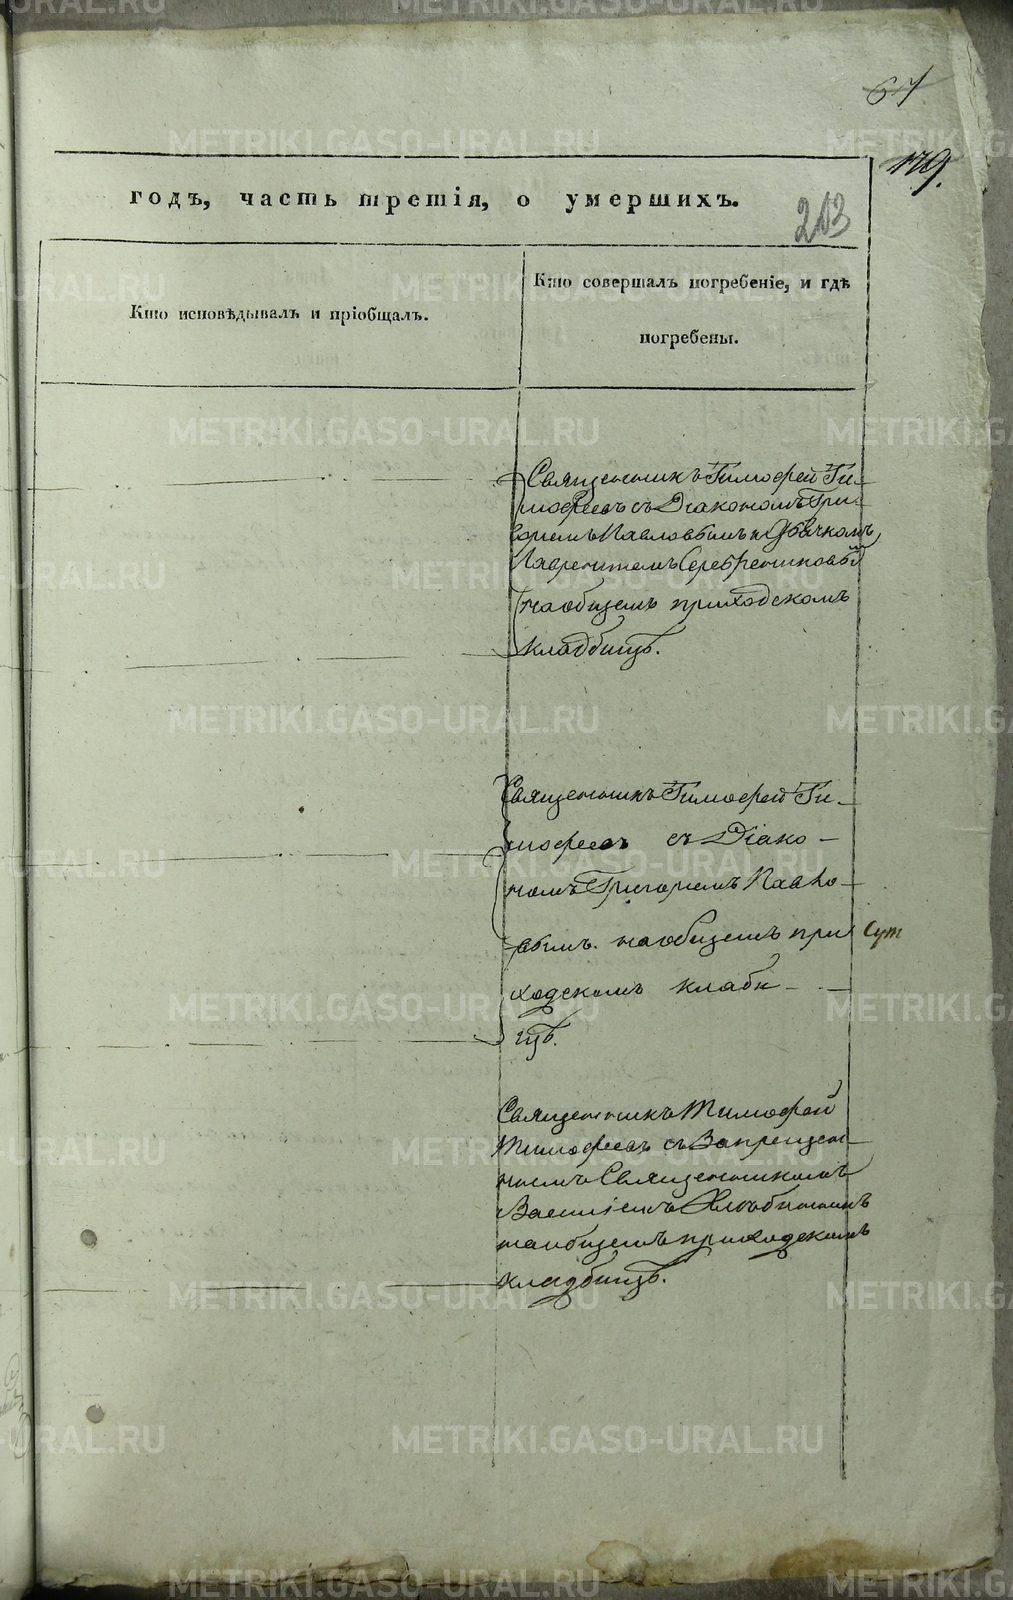 67
179.
годѣ, часть третія, о умершихъ.
203
Кто исповѣдывалъ и пріобщалъ.
Кто совершалъ погребеніе, и гдѣ
погребены.
Священникъ Тимофей Ти-
мофеевъ съ Діакономъ Гри-
горіемъ Павловымъ и Дьячкомъ
Лаврентіемъ Серебрениковы
на общемъ приходскомъ
кладбищѣ.
Священникъ Тимофей Ти-
мофеевъ съ Діако-
номъ Григоріемъ Павло-
вымъ. на общемъ при
ходскомъ кладби-
щѣ.
Священникъ Тимофей
Тимофеевъ съ Запрещен-
нымъ Священникомъ
Василіемъ
на общемъ приходскомъ
кладбищѣ.
METRIKI.GASO-URAL.RU